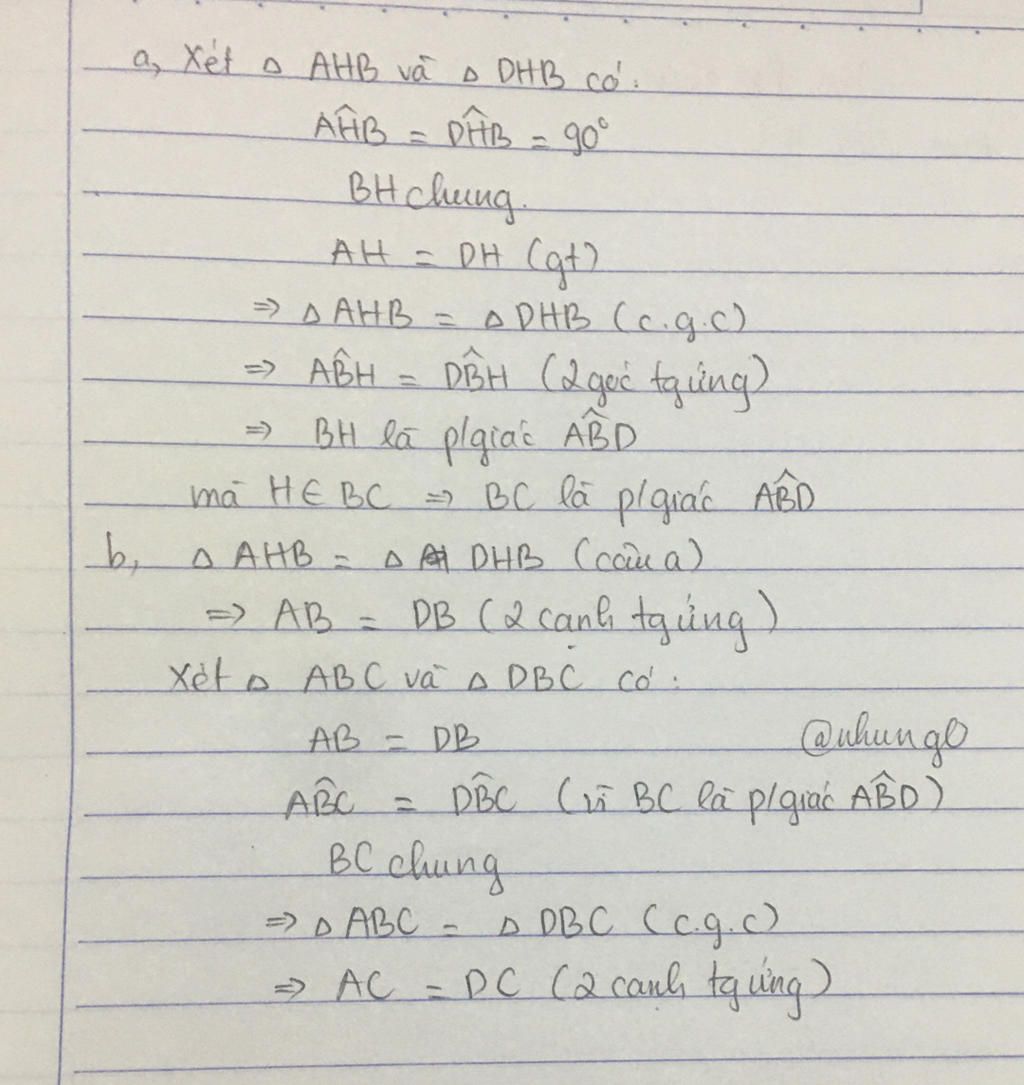 a, Xét △ AHB và △ DHB có:
AĤB = DĤB = 90°
BH chung.
AH = DH (gt)
⇒ △ AHB = △ DHB (c.g.c)
⇒ AB̂H = DB̂H (2 góc tg ứng)
⇒ BH là p/giác AB̂D
mà H ∈ BC ⇒ BC là p/giác AB̂D
b, △ AHB = △ DHB (câu a)
⇒ AB = DB (2 cạnh tg ứng)
Xét △ ABC và △ DBC có:
AB = DB
@nhung
AB̂C = DB̂C (vì BC là p/giác AB̂D)
BC chung
⇒ △ ABC = △ DBC (c.g.c)
⇒ AC = DC (2 cạnh tg ứng)